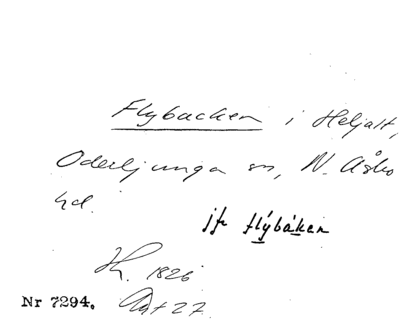 Flybacken i Heljalt,
Oderljunga sn, N. Åsbo
hd.
jfr flybaken
Lt. 1826
Nr 7294. Akt 27